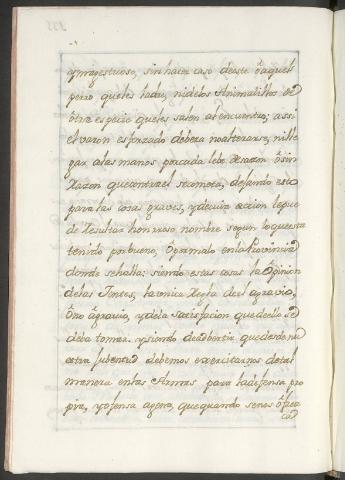 y magestuoso, sin hacer caso de este ò aquel
perro, que les ladra, ni de los Animalillos de
otra especie que les salen al encuentro; assi
el varon esforzado debera no alterarse, ni lle
gar a las manos por cada leve desazon ò sin
razon que contra el se cometa, dejando esto
para las cosas graves, y de cuia accion le pue
de resultar honrroso nombre segun lo que es
tenido por bueno, ò por malo en la Provincia
donde se halla: siendo estas cosas la Opinion
de las Gentes, la unica regla de el agravio,
ò no agravio, y de la satisfacion que de ello se
deba tomar. y siendo de advertir, que desde nu
estra Jubentud debemos exercitarnos de tal
manera en las Armas para la defensa pro
pia, y ofensa agena, que quando se nos ofrez
ca